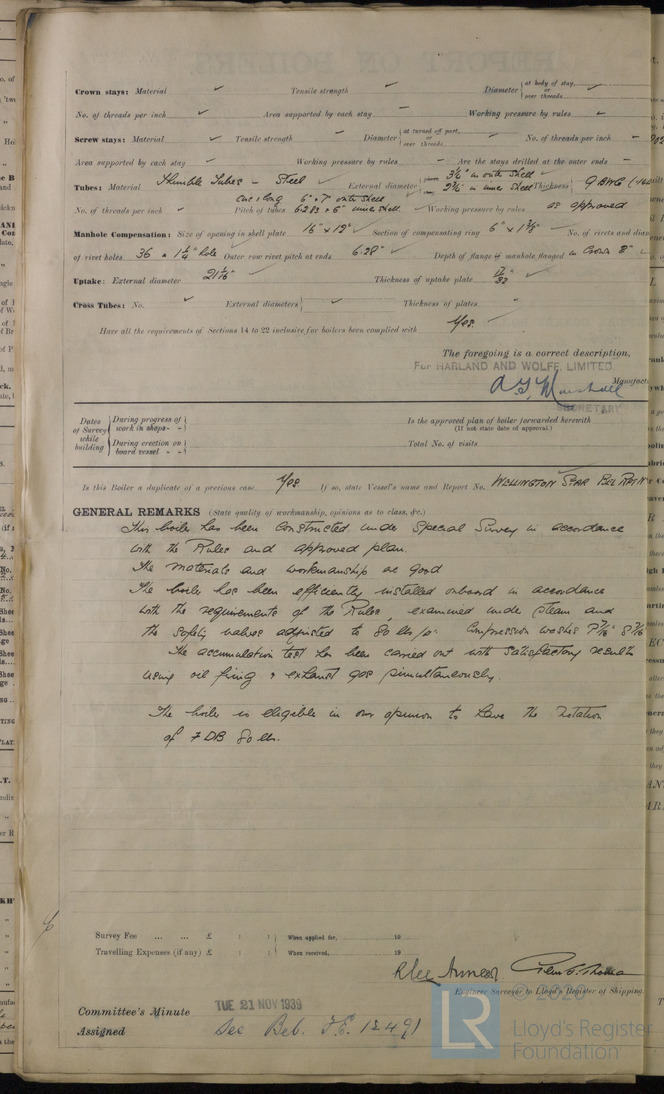 Crown stays: Material ✓ Tensile strength ✓ Diameter { at body of stay, or over threads ✓
No. of threads per inch ✓ Area supported by each stay – Working pressure by rules –
Screw stays: Material ✓ Tensile strength ✓ Diameter { at turned off part, or over threads – No. of threads per inch –
Area supported by each stay – Working pressure by rules – Are the stays drilled at the outer ends –
Tubes: Material Thimble Tubes – Steel ✓ External diameter { 3¼" in outer shell ✓ 2¾" in inner shell Thickness 9 BWG
Circ & Long 6" × 7" outer shell
No. of threads per inch ✓ Pitch of tubes 6.283 × 6" inner shell ✓ Working pressure by rules as approved
Manhole Compensation: Size of opening in shell plate 16" × 12" ✓ Section of compensating ring No. of rivets and diam
of rivet holes 36 Outer row rivet pitch at ends 6.28" ✓ Depth of flange if manhole flanged in Crown 8" ✓
Uptake: External diameter ✓ Thickness of uptake plate ✓
Cross Tubes: No. ✓ External diameters { ✓ Thickness of plates ✓
Have all the requirements of Sections 14 to 22 inclusive for boilers been complied with Yes.
The foregoing is a correct description,
For HARLAND AND WOLFF, LIMITED
Manufact
SECRETARY
Dates of Survey while building { During progress of work in shops - - } Is the approved plan of boiler forwarded herewith
(If not state date of approval.)
{ During erection on board vessel - - } Total No. of visits
Is this Boiler a duplicate of a previous case Yes If so, state Vessel's name and Report No. WELLINGTON STAR BEL RPT No
GENERAL REMARKS (State quality of workmanship, opinions as to class, &c.)
This boiler has been constructed under Special Survey in accordance
with the Rules and approved plan.
The materials and workmanship are good
The boiler has been efficiently installed onboard in accordance
with the requirements of the Rules, examined under steam and
the safety valves adjusted to 80 lbs/□" Compression washers
The accumulation test has been carried out with satisfactory results
using oil firing & exhaust gas simultaneously.
The boiler is eligible in our opinion to have the notation
of † DB 80 lb.
Survey Fee ... ... £ : : When applied for, 19
Travelling Expenses (if any) £ : : When received, 19
Engineer Surveyor to Lloyd's Register of Shipping.
© 2020
Committee's Minute TUE 21 NOV 1939
Assigned See Bel. F.E. 12491
LR
Lloyd's Register
Foundation